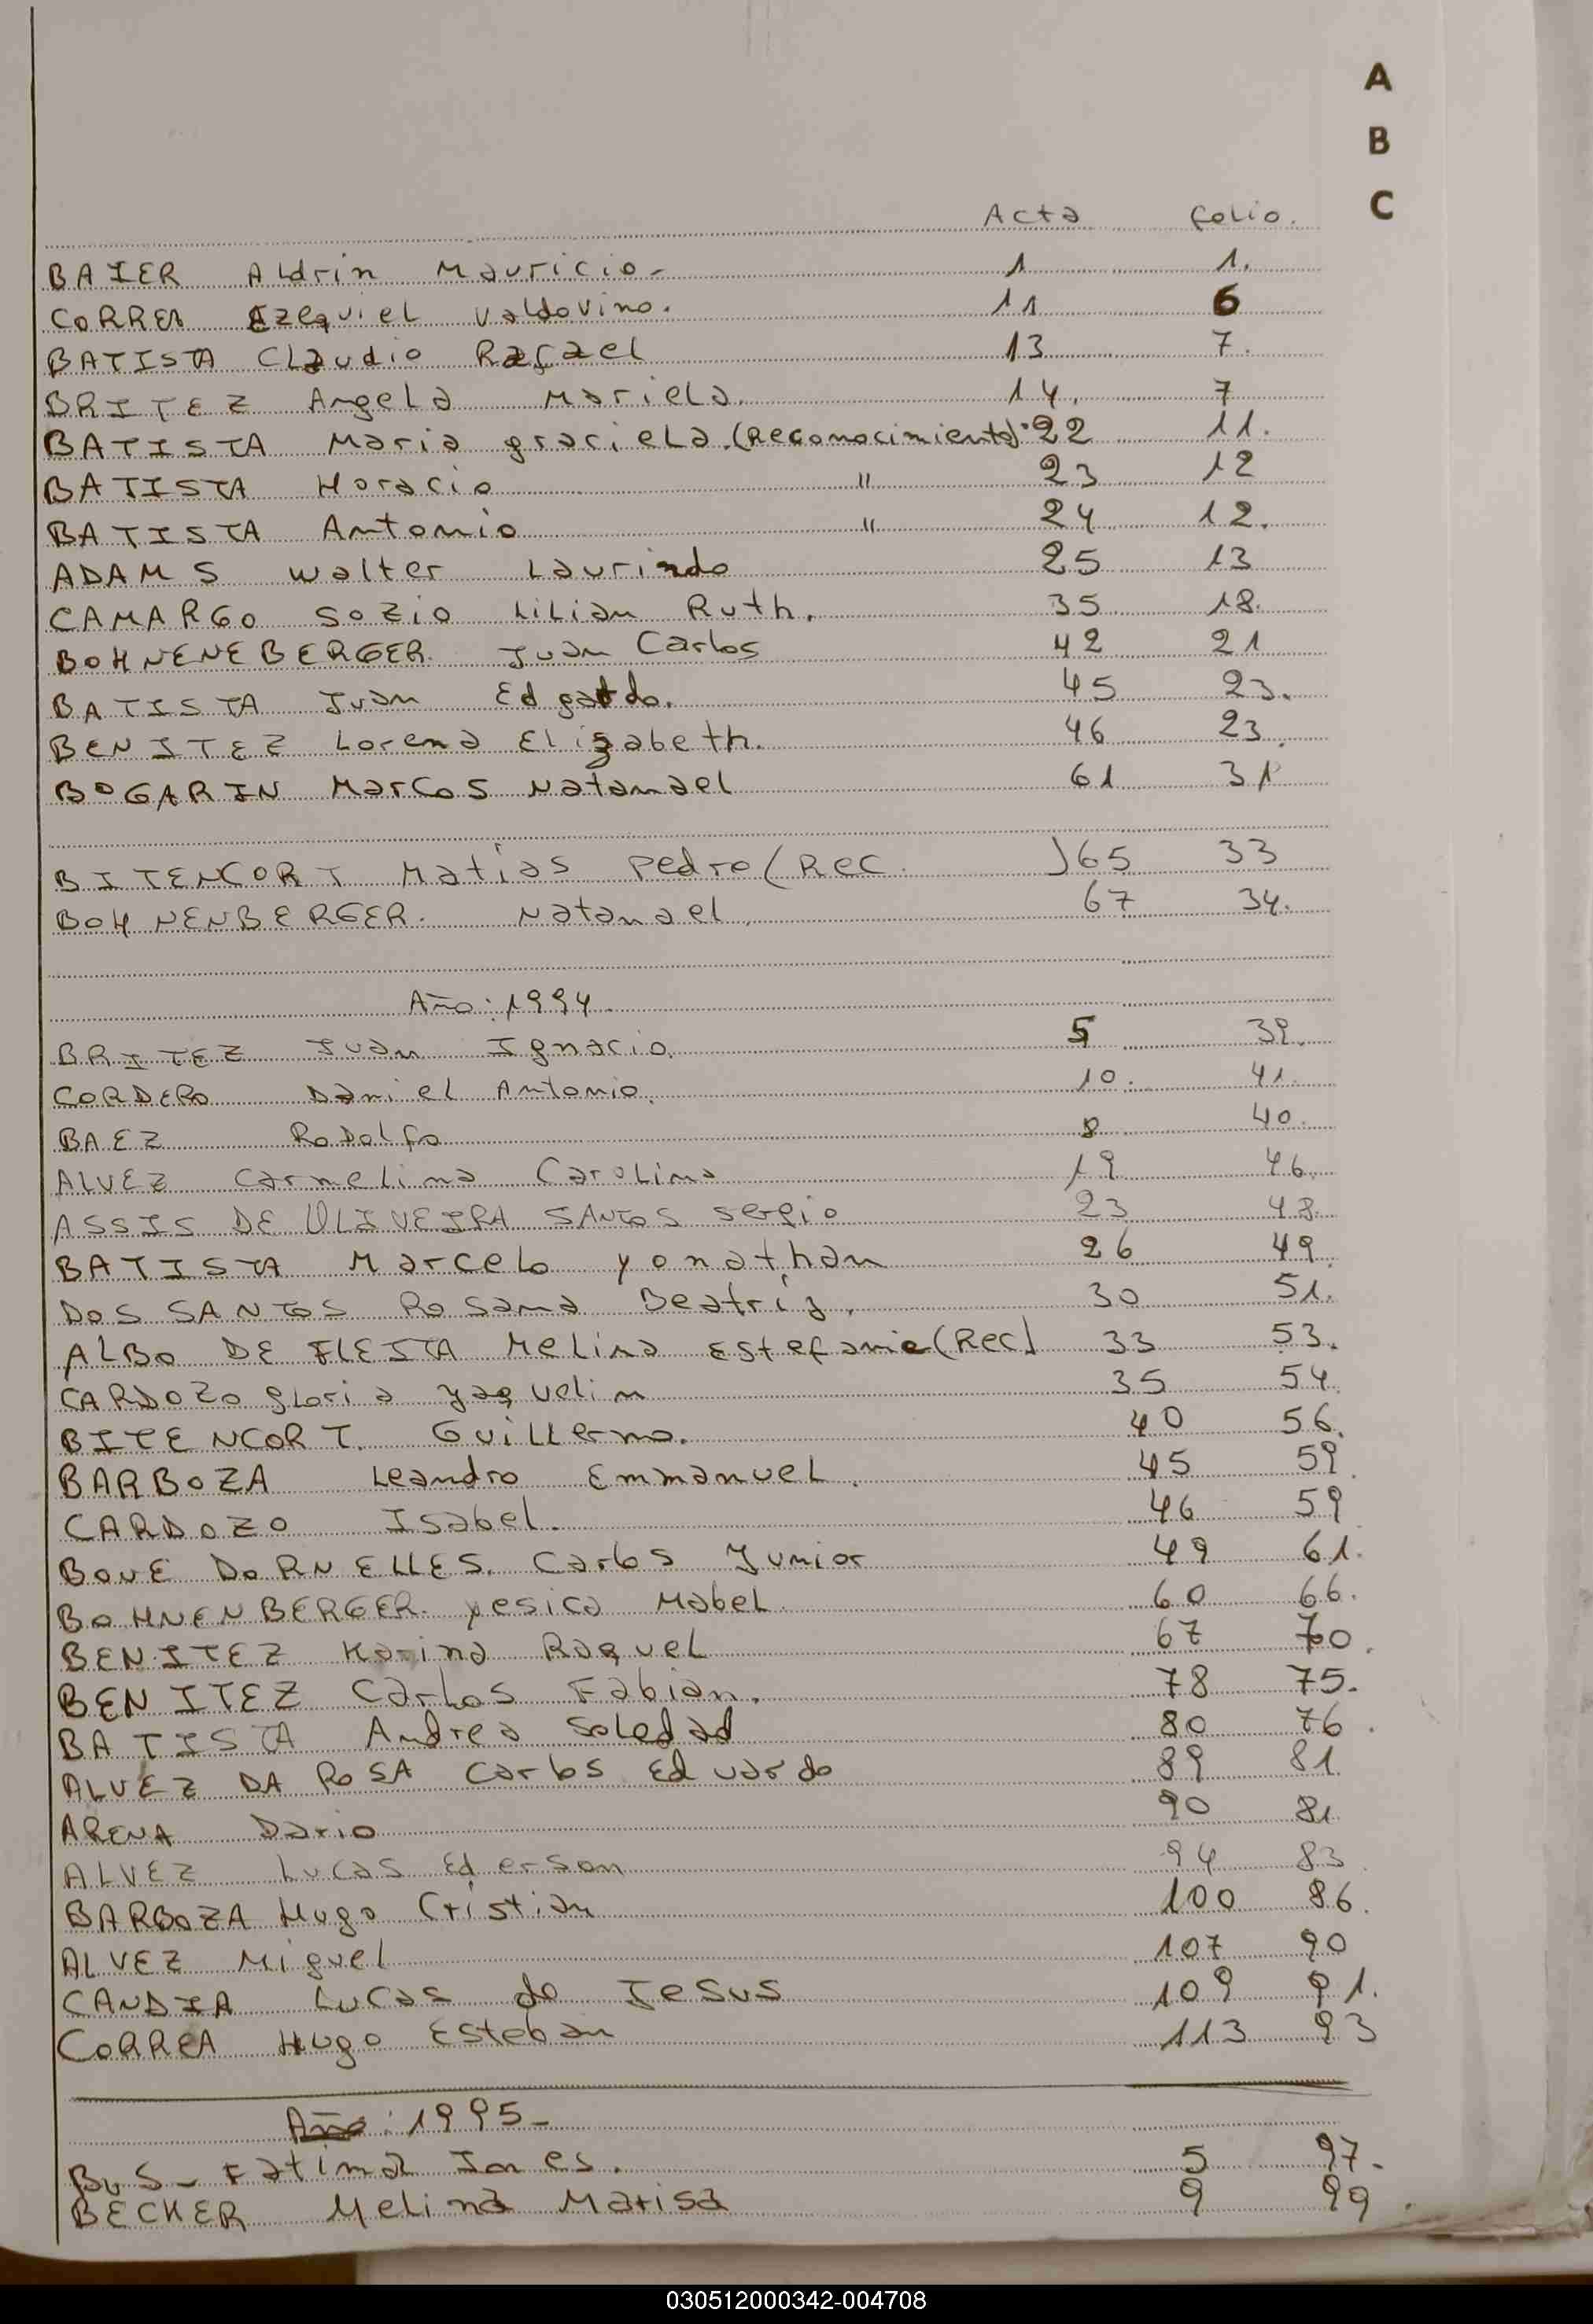 A
B
C
Acta folio.
BAIER Aldrin Mauricio- 1 1.
CORREA Ezequiel Valdovino. 11 6
BATISTA Claudio Rafael 13 7.
BRITEZ Angela Mariela. 14. 7
BATISTA Maria graciela (Reconocimiento) 22 11.
BATISTA Horacio " 23 12
BATISTA Antonio " 24 12.
ADAMS Walter Laurindo 25 13
CAMARGO SOZIO Lilian Ruth. 35 18.
BOHNENEBERGER. Juan Carlos 42 21
BATISTA Juan Edgardo. 45 23.
BENITEZ Lorena Elizabeth. 46 23.
BOGARIN Marcos Natanael 61 31
BITENCORT Matias Pedro (Rec. ) 65 33
BOHNENBERGER. Natanael. 67 34.
Año: 1994.
BRITEZ Juan Ignacio. 5 39.
CORDERO Daniel Antonio. 10. 41.
BAEZ Rodolfo 8 40.
ALVEZ Carmelina Carolina 19 46.
ASSIS DE OLIVEIRA SANTOS Sergio 23 48.
BATISTA Marcelo Yonathan 26 49.
DOS SANTOS Rosana Beatriz. 30 51.
ALBO DE FLEITA Melina Estefanie (Rec) 33 53.
CARDOZO gloria Yaquelin 35 54.
BITENCORT. Guillermo. 40 56.
BARBOZA Leandro Emmanuel. 45 59.
CARDOZO Isabel. 46 59
BOVE DORNELLES. Carlos Junior 49 61.
BOHNENBERGER. Yesica Mabel. 60 66.
BENITEZ Karina Raquel 67 70.
BENITEZ Carlos Fabian. 78 75.
BATISTA Andrea Soledad 80 76.
ALVEZ DA ROSA Carlos Eduardo 89 81.
ARENA Dario 90 81.
ALVEZ Lucas Ederson 94 83.
BARBOZA Hugo Cristian 100 86.
ALVEZ Miguel 107 90
CANDIA Lucas de Jesus 109 91.
CORREA Hugo Esteban 113 93
Año: 1995-
Fatima Ines. 5 97.
BECKER Melina Marisa 9 99.
030512000342-004708